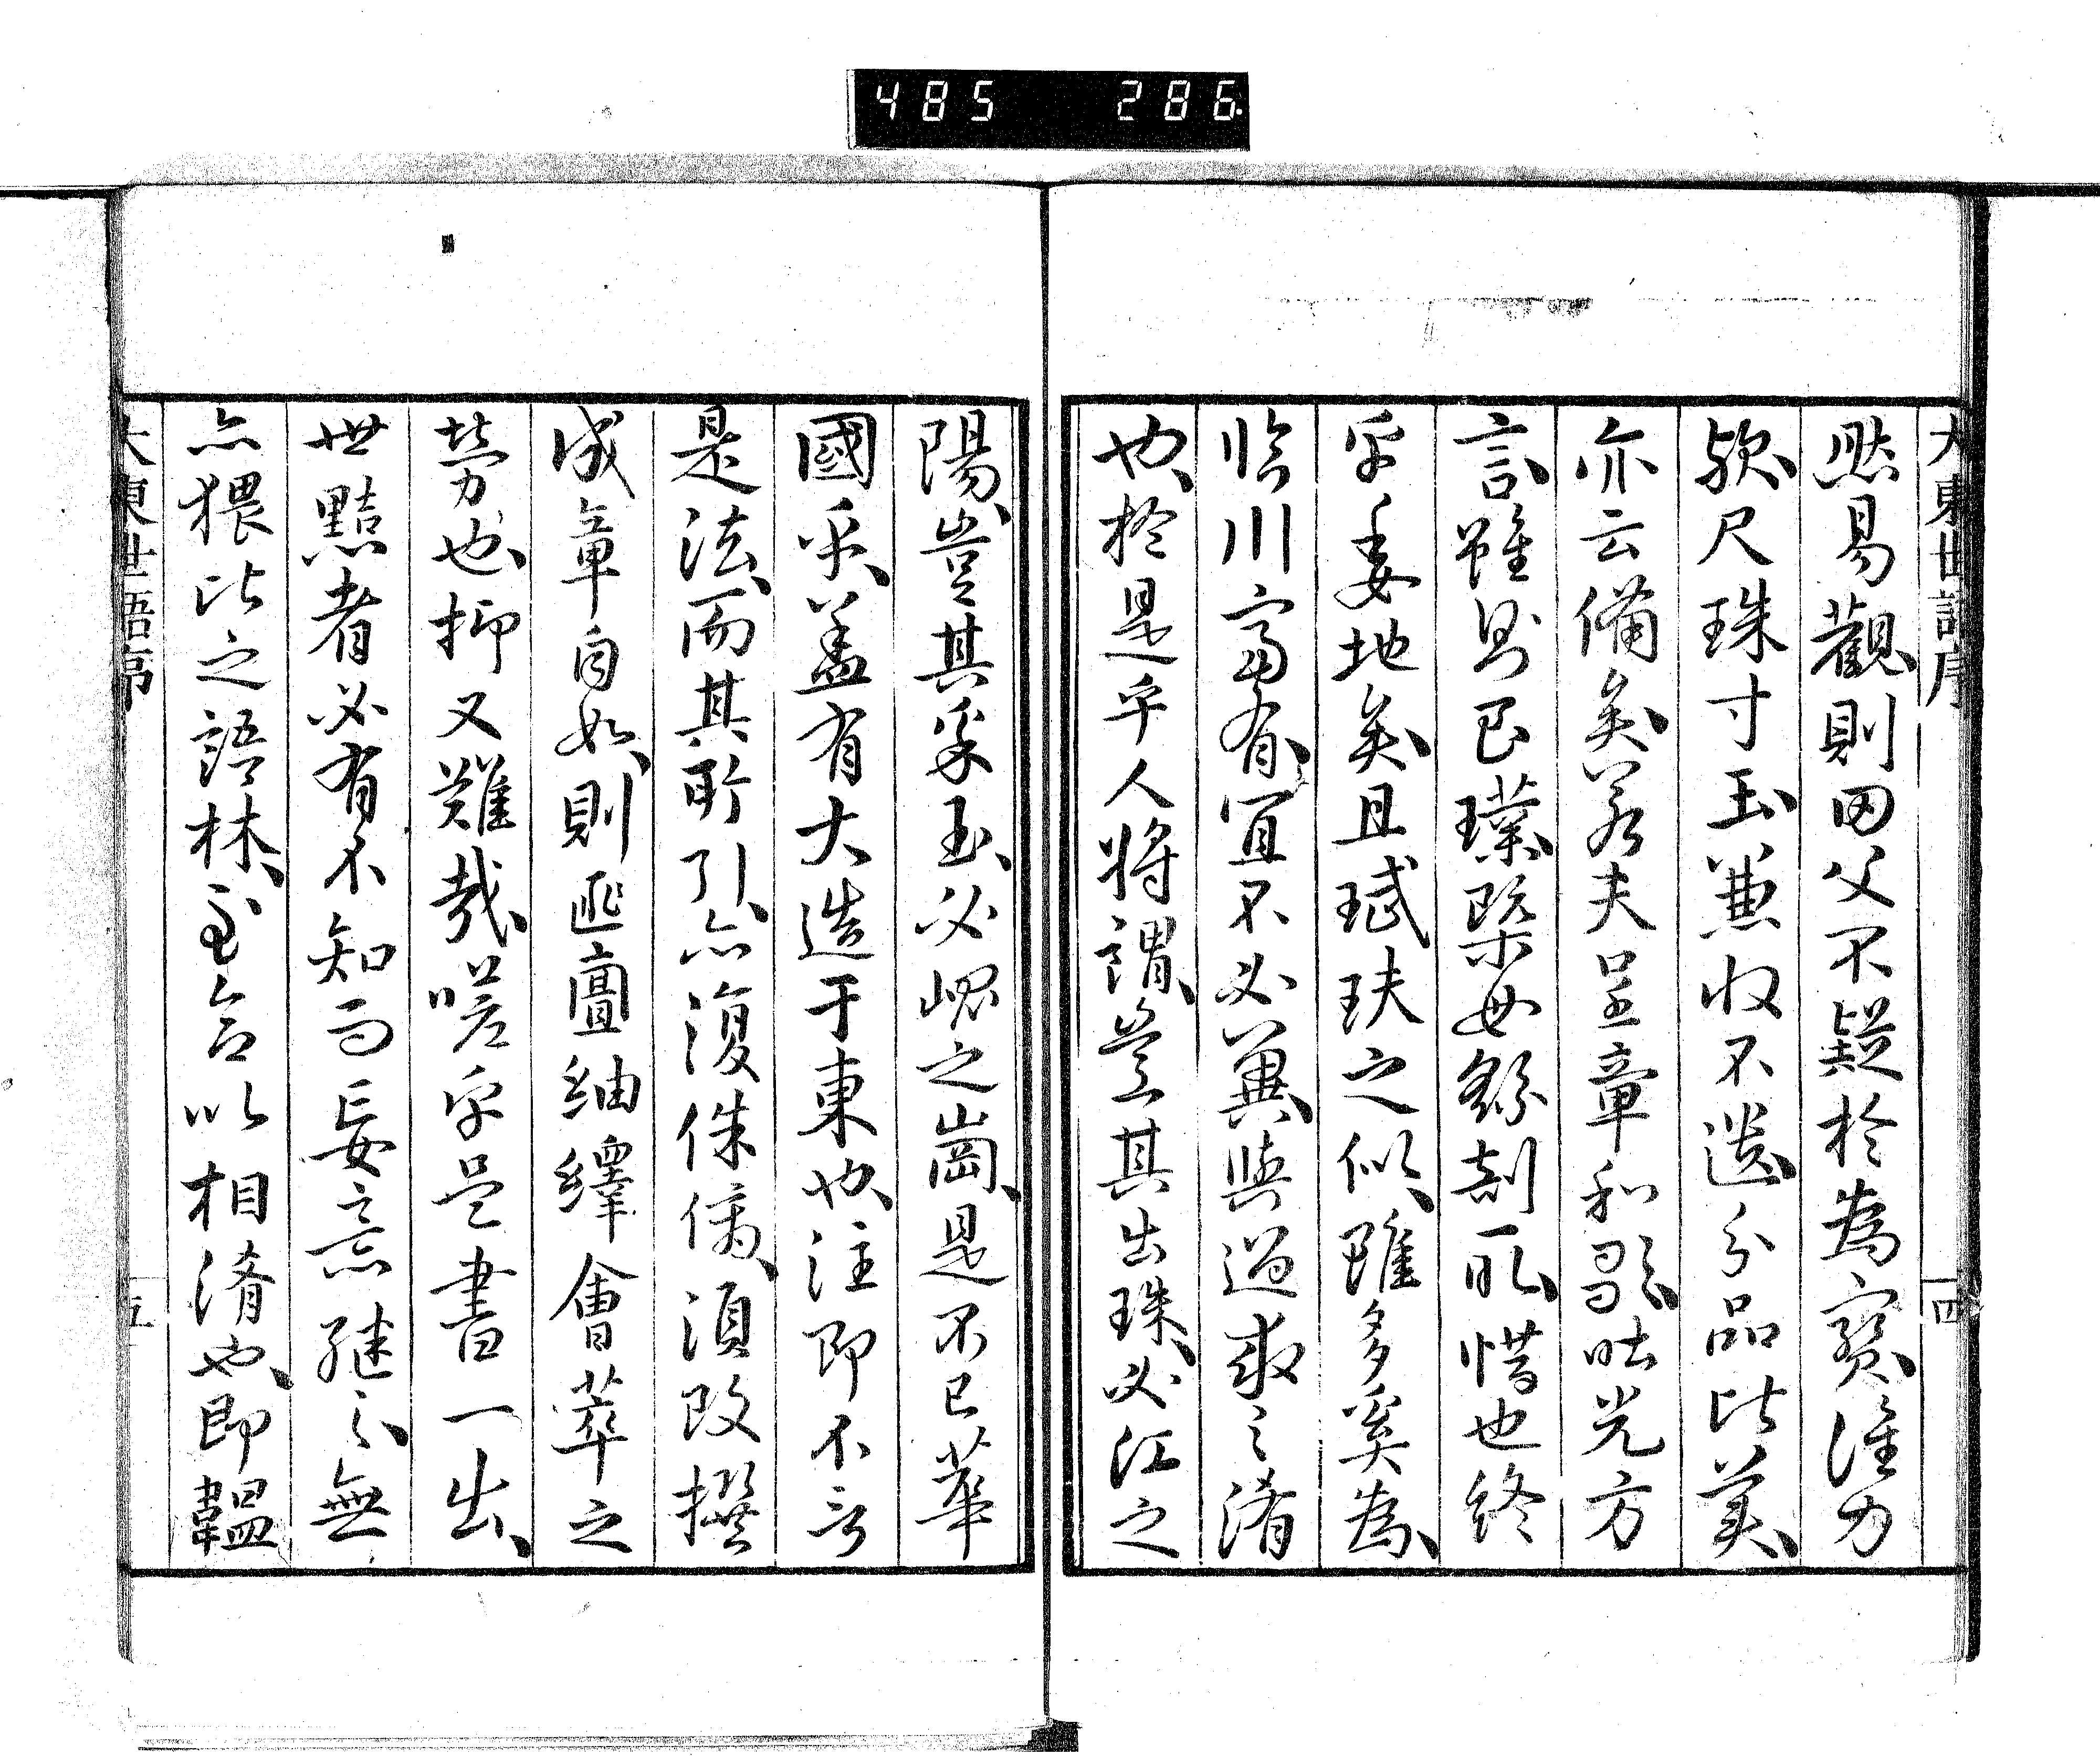 485 286
大東世語序 四
點易觀則田父不疑於為寶謹力
欤尺珠寸玉兼收不遺分品比美
亦云備矣若夫呈章和曷眩光方
言雖別已璞槩毋繇剖耶惜也終
乎委地矣且珷玞之似雖多奚為
臨川富有宜不必冀與過求之淆
也於是乎人將謂豈其出珠必江之
陽豈其采玉必崐之崗是不已華
國乎盖有大造于東也注即不言
是法而其所引亦復侏𠌯須改撰
成章自如則匪亶紬繹會萃之
勞也抑又難哉嗟乎是書一出
世黠者必有不知而妄意継之無
亦猥比之語林至令以相淆也即韞
大東世語序 五